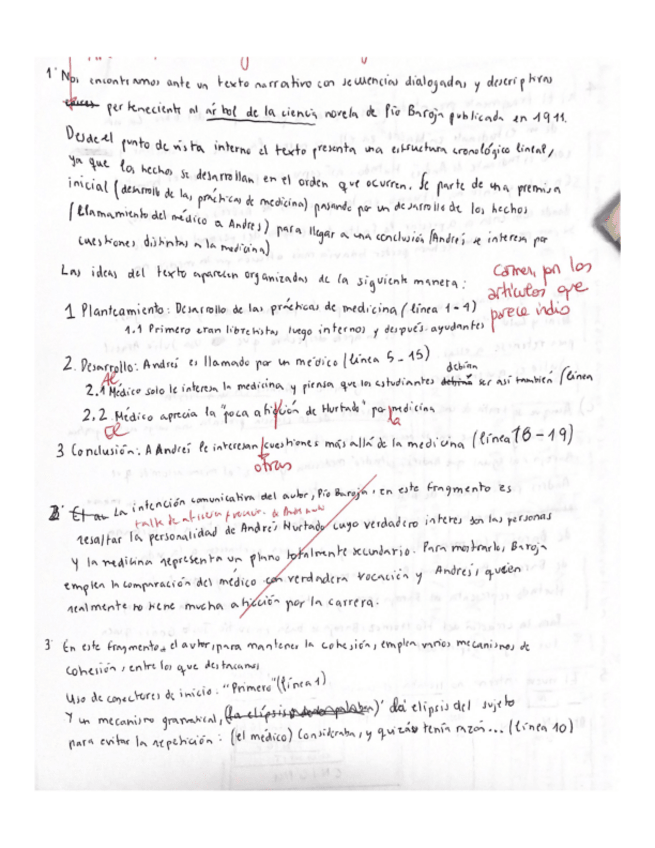 1. Nos encontramos ante un texto narrativo con secuencias dialogadas y descriptivas
perteneciente al árbol de la ciencia novela de Pío Baroja publicada en 1911.
Desde el punto de vista interno el texto presenta una estructura cronológico lineal,
ya que los hechos se desarrollan en el orden que ocurren. Se parte de una premisa
inicial (desarrollo de las prácticas de medicina) pasando por un desarrollo de los hechos
(Llamamiento del médico a Andrés) para llegar a una conclusión (Andrés se interesa por
cuestiones distintas a la medicina)
Las ideas del texto aparecen organizadas de la siguiente manera:
Correr, pon los
artículos que
parece indio
1 Planteamiento: Desarrollo de las prácticas de medicina (línea 1-4)
1.1 Primero eran libretistas luego internos y después ayudantes
2. Desarrollo: Andrés es llamado por un médico (línea 5-15)
Al
debían
2.1 Médico solo le interesa la medicina y piensa que los estudiantes debían ser así también (línea
2.2 Médico aprecia la "poca afición de Hurtado" por medicina
El
la
3 Conclusión: A Andrés le interesan cuestiones más allá de la medicina (línea 18-19)
otras
2 El au La intención comunicativa del autor, Pío Baroja, en este fragmento es
resaltar la personalidad de Andrés Hurtado cuyo verdadero interés son las personas
y la medicina representa un plano totalmente secundario. Para mostrarlo, Baroja
emplea la comparación del médico con verdadera vocación y Andrés, quien
realmente no tiene mucha afición por la carrera.
3. En este fragmento, el autor, para mantener la cohesión, emplea varios mecanismos de
cohesión, entre los que destacamos
Uso de conectores de inicio: "Primero" (línea 1)
Y un mecanismo gramatical, la elipsis del sujeto
para evitar la repetición: (el médico) Consideraba, y quizás tenía razón... (línea 10)